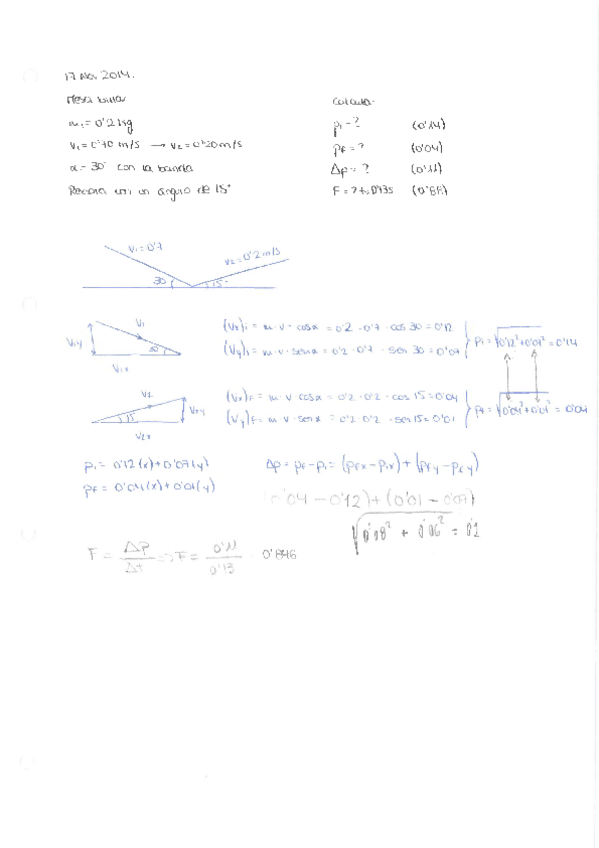 17 Nov 2014.
Mesa billar
m₁ = 0'2 kg
v₁ = 0'70 m/s → v₂ = 0'20 m/s
α = 30° con la banda
Rebota con un ángulo de 15°
Calcular
p₁ = ? (0'14)
pf = ? (0'04)
Δp = ? (0'11)
F = ? (0'88)
v₁ = 0'7
v₂ = 0'2 m/s
30 15°
V₁
V₁y
30°
V₁x
(Vx)i = m · v · cosα = 0'2 · 0'7 · cos 30 = 0'12
(Vy)i = m · v · senα = 0'2 · 0'7 · sen 30 = 0'07
p₁ = √0'12² + 0'07² = 0'14
V2
15
V2y
V2x
(Vx)f = m · v · cosα = 0'2 · 0'2 · cos 15 = 0'04
(Vy)f = m · v · senα = 0'2 · 0'2 · sen 15 = 0'01
pf = √0'04² + 0'01² = 0'04
p₁ = 0'12(x) + 0'07(y)
pf = 0'04(x) + 0'01(y)
Δp = pf - p₁ = (pfx - p₁x) + (pfy - pfy)
(0'04 - 0'12) + (0'01 - 0'07)
√0'08² + 0'06² = 0'1
F = Δp/Δt => F = 0'11/0'13 = 0'846